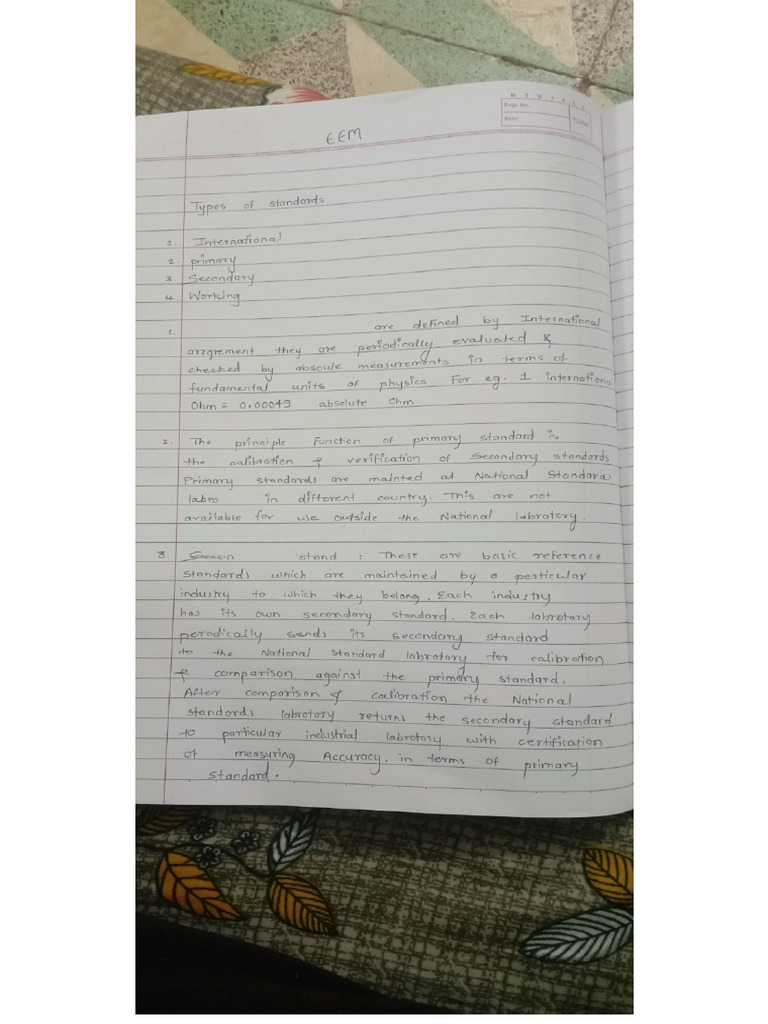 M T W T F S S
Page No.:
Date:
YOUVA
EEM
Types of standards
1 International
2. primary
3 Secondary
4. Working
1. are defined by International
arrgrement they are periodically evaluated &
checked by abscule measurements in terms of
fundamental units of physics. For eg. 1 internationa
Ohm = 0.00049 absolute Ohm
2. The prinaiple Function of primary standard is
the calibration & verification of Secondary standards
Primary standards are mainted at National Standara
labro in different country. This are not
available for use outside the National labratery.
3. Secon stand : These are basic reference
standards which are maintained by a perticular
industry to which they belong. Each industry
has its own secondary standard. Each labrotary
peredically sends its secondary standard
to the National Standard labrotary for calibration
& comparison against the primary standard.
After comparison & calibration the National
standards labrotary returns the secondary standard
to particular industrial labrotary with certification
of measuring Accuracy. in terms of primary
standard.